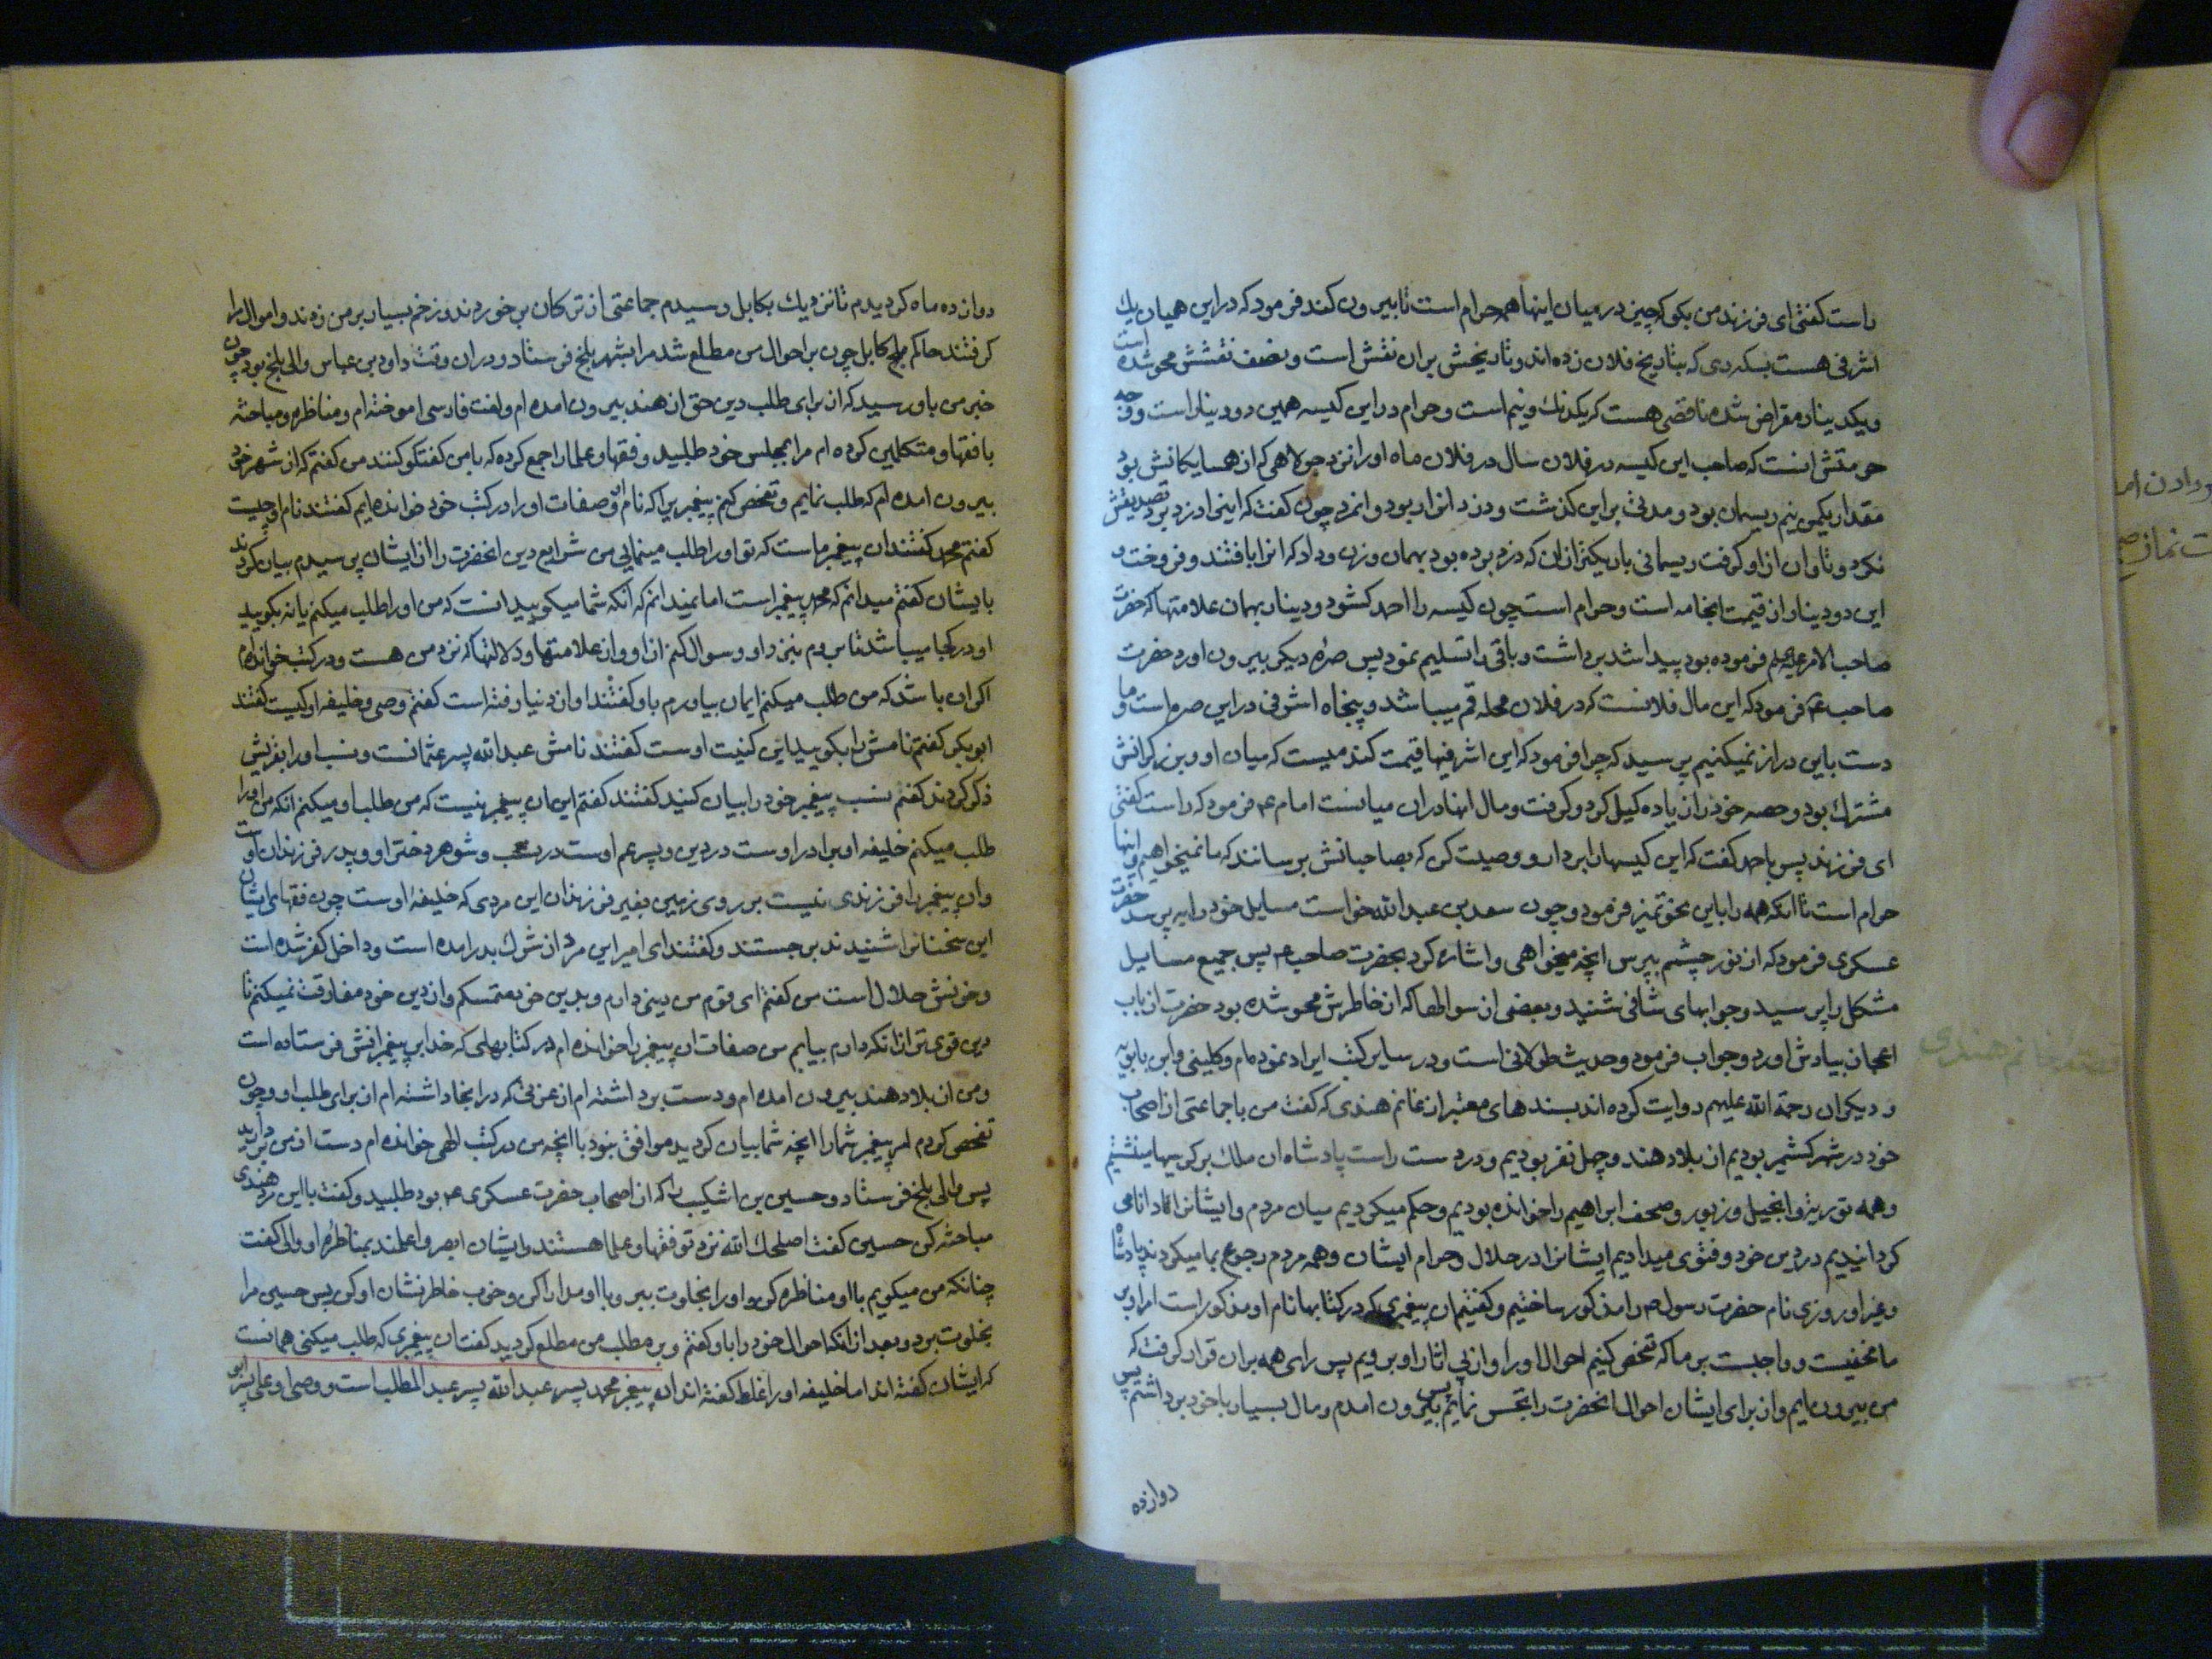 راست کفتی ای فرزند من بکو که چیز در میان اینها هم حرام است تا بیرون کند فرمود که در این همیان یك
اشرفی هست بسکه ری که بتاریخ فلان زده اند و تاریخش بران نقش است و نصف نقشش محو شده است
و یکدینار مقراض شده ناقصی هست که یکدنك و نیم است و حرام در این کیسه همین دو دینار است و وجه
حرمتش انست که صاحب این کیسه در فلان سال در فلان ماه او را نزد جولاهی که از همسایکانش بود
مقدار یکمن و نیم ریسمان بود و مدتی بر این کذشت و دزد انرا ربود و انمرد چون کفت که اینرا دزد برد تصدیقش
نکرد و تاوان از او کرفت ریسمانی باریکتر از ان که دزد برده بود بهمان وزن و داد که انرا بافتند و فروخت و
این دو دینار از قیمت انجامه است و حرام است چون کیسه را احمد کشود دو دینار بهمان علامتها که حضرت
صاحب الامر علیه السلم فرموده بود پیدا شد برداشت و باقی را تسلیم نمود پس صره دیکر بیرون اورد حضرت
صاحب ع فرمود که این مال فلانست که در فلان محله قم میباشد و پنجاه اشرفی در این صره است و ما
دست باین دراز نمیکنیم پرسید که چرا فرمود که این اشرفیها قیمت کندمیست که میان او و برزکرانش
مشترك بود و حصه خود را زیاده کیل کرد و کرفت و مال انها در ان میانست امام ع فرمود که راست کفتی
ای فرزند پس باحمد کفت که این کیسها را بردار و وصیت کن که بصاحبانش برسانند که ما نمیخواهیم و اینها
حرام است تا انکه همه را باین نحو تمیز فرمود و چون سعد بن عبد الله خواست مسایل خود را بپرسد حضرت
عسکری فرمود که از نور چشمم بپرس انچه میخواهی و اشاره کرد بحضرت صاحب ع پس جمیع مسایل
مشکل را پرسید و جوابهای شافی شنید و بعضی از سوالها که از خاطرش محو شده بود حضرت از باب
اعجاز بیادش اورد و جواب فرمود و حدیث طولانی است و در سایر کتب ایراد نموده ام و کلینی و ابن بابویه
و دیکران رحمة الله علیهم روایت کرده اند بسندهای معتبر از غانم هندی که کفت من با جماعتی از اصحاب
خود در شهر کشمیر بودیم از بلاد هند و چهل نفر بودیم و در دست راست پادشاه ان ملك بر کرسیها مینشستیم
و همه توریة و انجیل و زبور و صحف ابراهیم را خوانده بودیم و حکم میکردیم میان مردم و ایشانرا دانا می
کردانیدیم در دین خود و فتوی میدادیم ایشانرا در حلال و حرام ایشان و همه مردم رجوع بما میکردند پادشاه
و غیر او روزی نام حضرت رسول ص را مذکور ساختیم و کفتیم ان پیغمبری که در کتابها نام او مذکور است امر او بر
ما مخفیست و واجبست بر ما که تفحص کنیم احوال او را و از پی اثار او برویم پس رای همه بران قرار کرفت که
من بیرون ایم و از برای ایشان احوال انحضرت را تجسس نمایم پس بیرون امدم و مال بسیار با خود برداشتم پس
دوازده
غانم هندی
دوازده ماه کردیدم تا نزدیك بکابل رسیدم جماعتی از ترکان بر خوردند و زخم بسیار بر من زدند و اموال را
کرفتند حاکم کابل چون بر احوال من مطلع شد مرا بشهر بلخ فرستاد و دران وقت داود بن عباس والی بلخ بود چون
خبر من باو رسید که از برای طلب دین حق از هند بیرون امده ام و لغت فارسی اموخته ام و مناظره و مباحثه
با فقها و متکلمین کرده ام مرا بمجلس خود طلبید و فقها و علما را جمع کرده که با من کفتکو کنند من کفتم که از شهر خود
بیرون امده ام که طلب نمایم و تفحص کنم پیغمبریرا که نام او و صفات او را در کتب خود خوانده ایم کفتند نام او چیست
کفتم محمد کفتند ان پیغمبر ماست که تو او را طلب مینمایی من شرایع دین انحضرت را از ایشان پرسیدم بیان کردند
بایشان کفتم میدانم که محمد پیغمبر است اما نمیدانم که انکه شما میکویید انست که من او را طلب میکنم یا نه بکویید
او در کجا میباشد تا بروم بنزد او و سوال کنم از او و از علامتها و دلالتها که نزد من هست و در کتب خوانده ام
اکر ان باشد که من طلب میکنم ایمان بیاورم باو کفتند او از دنیا رفته است کفتم وصی و خلیفه او کیست کفتند
ابو بکر کفتم نامش را بکویید این کنیت اوست کفتند نامش عبد الله پسر عثمانست و نسب او را بقریش
ذکر کردند کفتم نسب پیغمبر خود را بیان کنید کفتند کفتم این ان پیغمبر نیست که من طلب او میکنم انکه من او را
طلب میکنم خلیفه او برادر اوست در دین و پسر عم اوست در نسب و شوهر دختر او و پدر فرزندان اوست
و ان پیغمبر را فرزندی نیست بر روی زمین بغیر فرزندان این مردی که خلیفه اوست چون فقهای ایشان
این سخنانرا شنیدند بر جستند و کفتند ای امیر این مرد از شرك بدر امده است و داخل کفر شده است
و خونش حلال است من کفتم ای قوم من دینی دارم و بدین خود متمسکم و از دین خود مفارقت نمیکنم تا
دین قوی تر از انکه دارم بیابم من صفات ان پیغمبر را خوانده ام در کتابهایی که خدا بر پیغمبرانش فرستاده است
و من از بلاد هند بیرون امده ام و دست برداشته ام از عزتی که در انجا داشته ام از برای طلب او و چون
تفحص کردم امر پیغمبر شما را انچه شما بیان کردید موافق نبود با انچه من در کتب الهی خوانده ام دست از من بردارید
پس والی بلخ فرستاد و حسین بن اشکیب را که از اصحاب حضرت عسکری ع بود طلبید و کفت با این مرد هندی
مباحثه کن حسین کفت اصلحك الله نزد تو فقها و علما هستند و ایشان ابصر و اعلمند بمناظره او والی کفت
چنانکه من میکویم با او مناظره کن و او را بخلوت ببر و با او مدارا کن و خوب خاطر نشان او کن پس حسین مرا
بخلوت برد و بعد از انکه احوال خود را باو کفتم و بر مطلب من مطلع کردید کفت ان پیغمبری که طلب میکنی همانست
که ایشان کفته اند اما خلیفه او را غلط کفته اند ان پیغمبر محمد پسر عبد الله پسر عبد المطلب است و وصی او علی پسر ابو